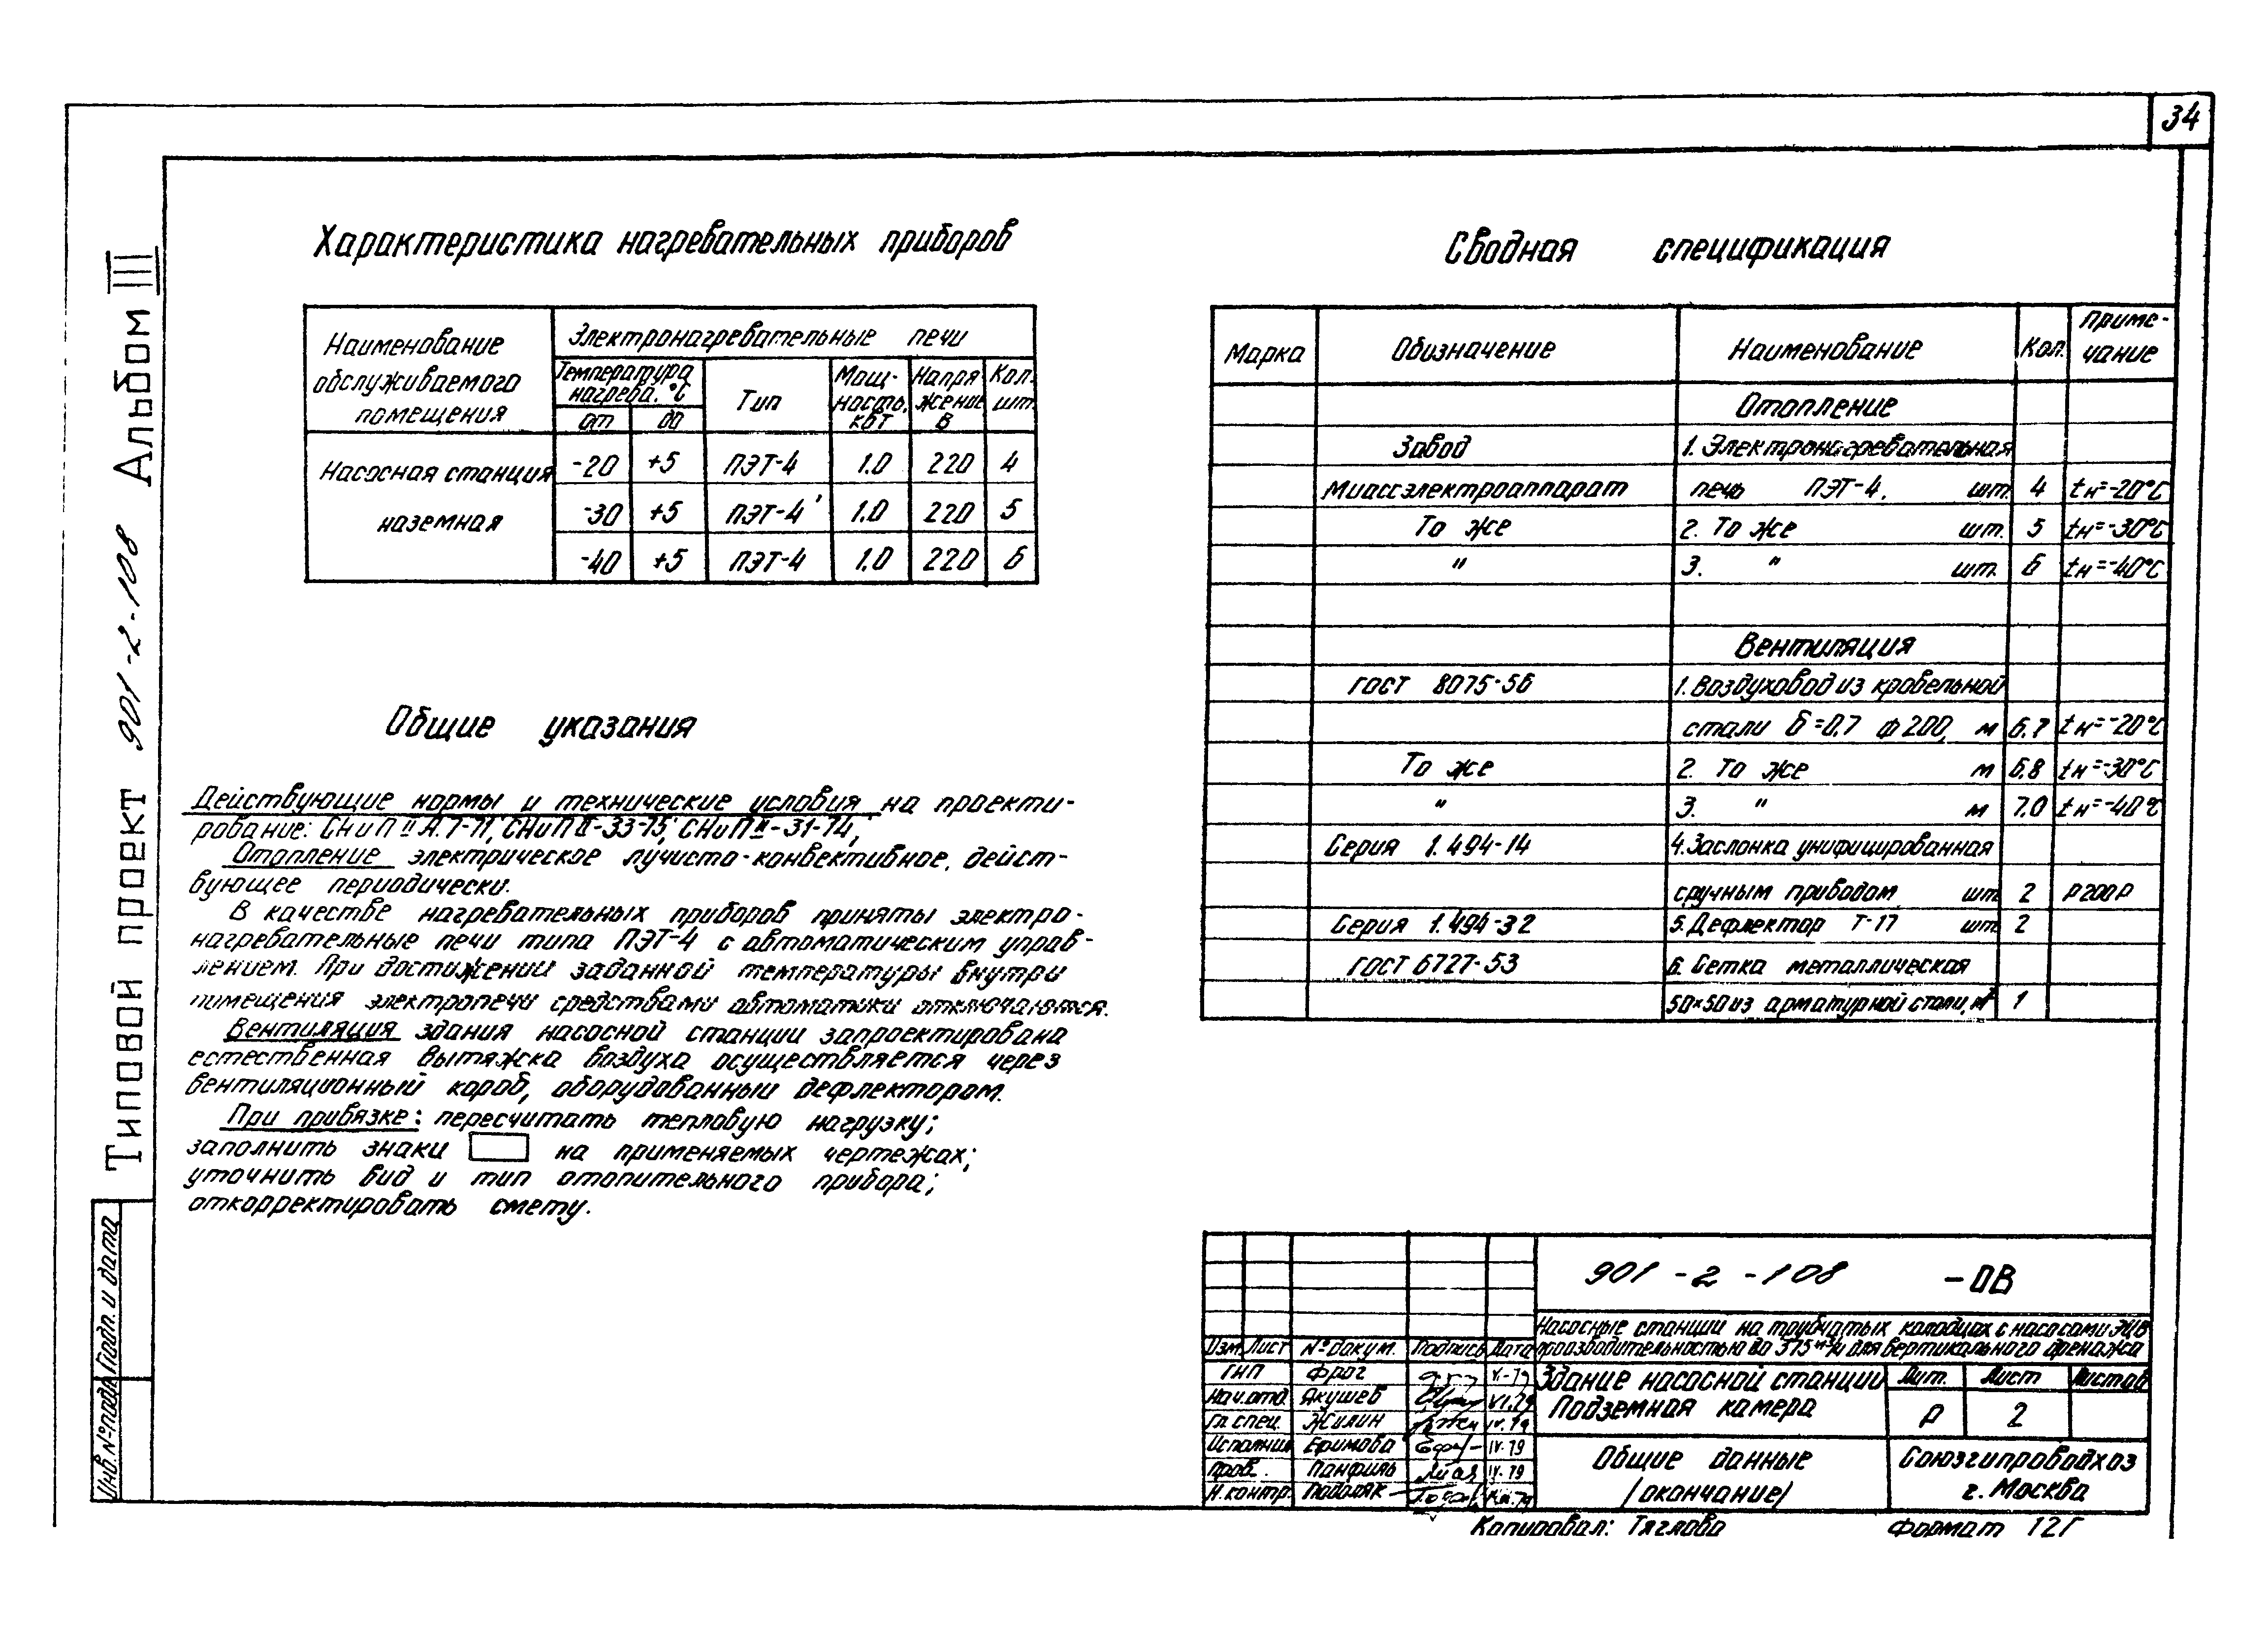 34
Типовой проект 901-2-108 Альбом III
Характеристика нагревательных приборов
Наименование обслуживаемого помещения
Электронагревательные печи
Температура нагрева, °С
от до
Тип
Мощ-ность, кВт
Напря жение В
Кол. шт.
Насосная станция наземная
-20 +5 ПЭТ-4 1.0 220 4
-30 +5 ПЭТ-4 1.0 220 5
-40 +5 ПЭТ-4 1.0 220 6
Общие указания
Действующие нормы и технические условия на проекти-
рование: СНиП II А.7-71, СНиП II-33-75, СНиП II-31-74,
Отопление электрическое лучисто-конвективное, дейст-
вующее периодически.
В качестве нагревательных приборов приняты электро-
нагревательные печи типа ПЭТ-4 с автоматическим управ-
лением. При достижении заданной температуры внутри
помещения электропечи средствами автоматики отключаются.
Вентиляция здания насосной станции запроектирована
естественная вытяжка воздуха осуществляется через
вентиляционный короб, оборудованный дефлектором.
При привязке: пересчитать тепловую нагрузку;
заполнить знаки на применяемых чертежах;
уточнить вид и тип отопительного прибора;
откорректировать смету.
Сводная спецификация
Марка Обозначение Наименование Кол. Приме-чание
Отопление
Завод 1. Электронагревательная
Миассэлектроаппарат печь ПЭТ-4, шт. 4 tн=-20°С
То же 2. То же шт. 5 tн=-30°С
" 3. " шт. 6 tн=-40°С
Вентиляция
ГОСТ 8075-56 1. Воздуховод из кровельной
стали б=0,7 ф 200, м 6,7 tн=-20°С
То же 2. То же м 6,8 tн=-30°С
" 3. " м 7,0 tн=-40°С
Серия 1.494-14 4. Заслонка унифицированная
с ручным приводом шт 2 Р200Р
Серия 1.494-32 5. Дефлектор Т-17 шт 2
ГОСТ 6727-53 6. Сетка металлическая
50×50 из арматурной стали, м² 1
901-2-108 -ОВ
Насосные станции на трубчатых колодцах с насосами ЭЦВ
производительностью до 375 м³/ч для вертикального дренажа
Изм. Лист № докум. Подпись Дата
ГИП Фрог V-79
Нач. отд. Якушев VI.79
Гл. спец. Жилин IV.79
Исполнил Ефимова IV.79
Пров. Панфиль IV.79
Н. контр. Подоляк
Здание насосной станции
Подземная камера
Лит. Лист Листов
Р 2
Общие данные
/окончание/
Союзгипроводхоз
г. Москва
Копировал: Тяглова Формат 12Г
Инв. № подл. Подп. и дата